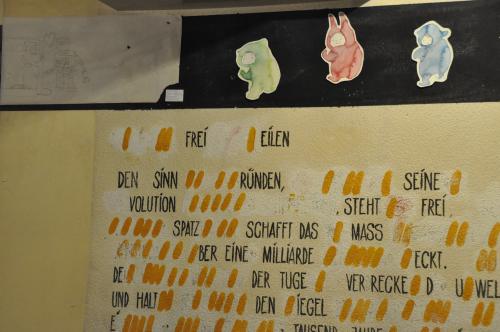 FREI EILEN
DEN SINN RÜNDEN, SEINE
VOLUTION , STEHT FREI,
SPATZ SCHAFFT DAS MASS
BER EINE MILLIARDE ECKT.
DE DER TUGE VERRECKE D U WEL
UND HALT DEN IEGEL
TAUSEND